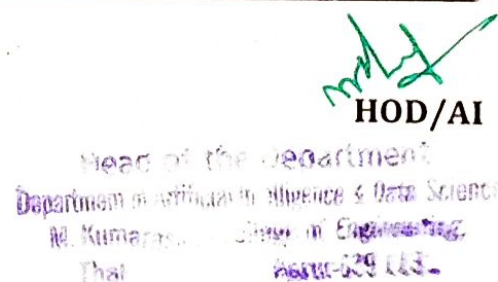 HOD/AI
Head of the Department
Department of Artificial Intelligence & Data Science
M. Kumaras of Engineering,
Thal Karur-639